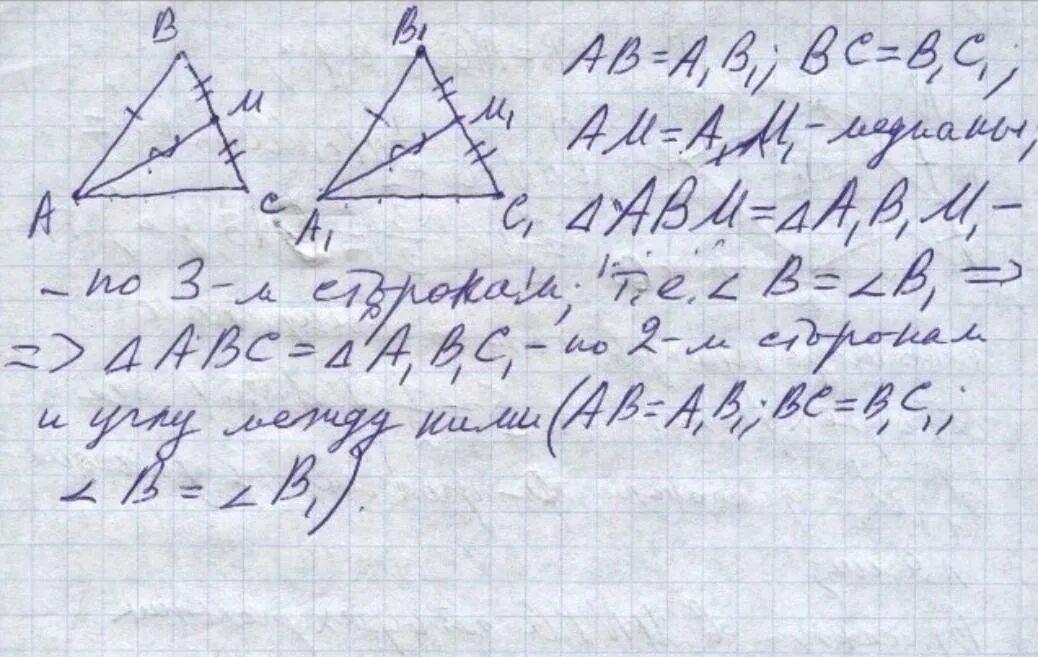 B B₁ AB = A₁B₁; BC = B₁C₁;
M M₁ AM = A₁M₁ - медианы,
A C A₁ C₁ △ABM = △A₁B₁M₁ -
- по 3-м сторонам, т.е. ∠B = ∠B₁ =>
=> △ABC = △A₁B₁C₁ - по 2-м сторонам
и углу между ними (AB = A₁B₁; BC = B₁C₁;
∠B = ∠B₁).